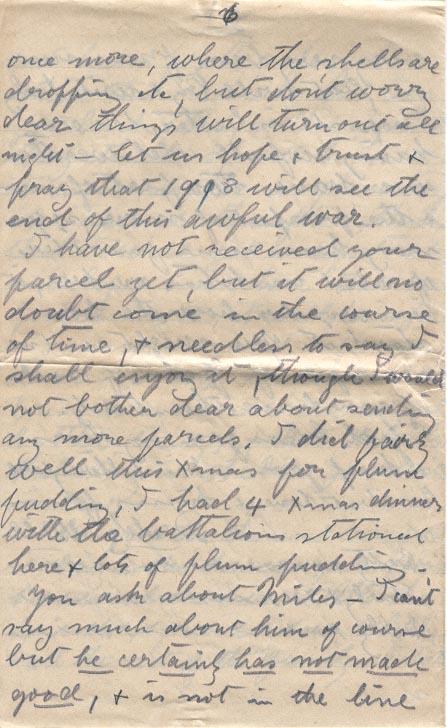 6
once more, where the shells are
dropping etc, but don't worry
dear things will turn out all
right - let us hope & trust &
pray that 1918 will see the
end of this awful war.
I have not received your
parcel yet, but it will no
doubt come in the course
of time, & needless to say I
shall enjoy it, though I would
not bother dear about sending
any more parcels. I did fairly
well this Xmas for plum
pudding, I had 4 Xmas dinners
with the battalions stationed
here & lots of plum pudding -
You ask about Miles - I can't
say much about him of course
but he certainly has not made
good, & is not in the line